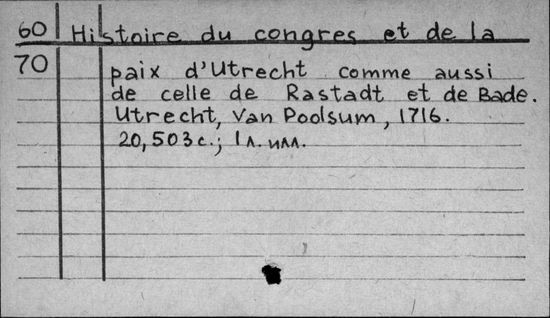 60 Histoire du congres et de la
70 paix d'Utrecht comme aussi
de celle de Rastadt et de Bade.
Utrecht, Van Poolsum, 1716.
20,503 с.; 1 л. илл.